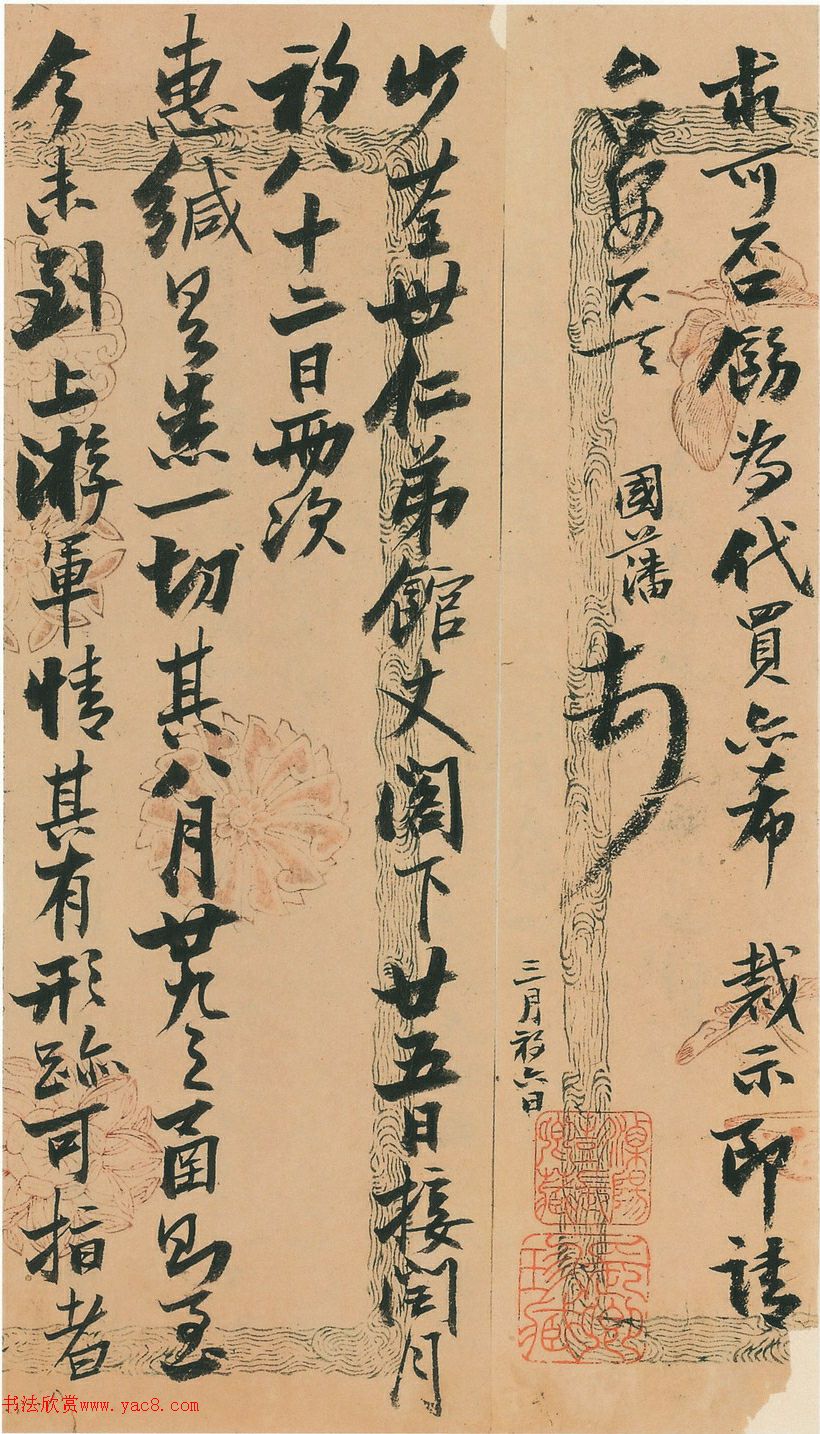 求可否飭為代買亦希 裁示即請
台安不一
國藩 頓
三月初六日
少荃世仁弟館丈閣下廿五日接閏月
初八十二日兩次
惠緘具悉一切其八月廿九之函則至
今未到上游軍情其有形跡可指者
书法欣赏www.yac8.com